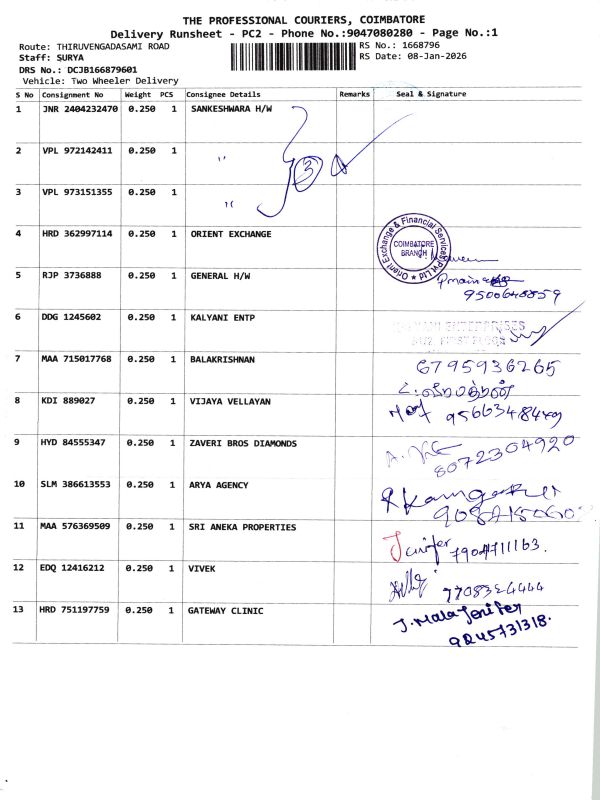 THE PROFESSIONAL COURIERS, COIMBATORE
Delivery Runsheet - PC2 - Phone No.:9047080280 - Page No.:1
Route: THIRUVENGADASAMI ROAD
RS No.: 1668796
Staff: SURYA
RS Date: 08-Jan-2026
DRS No.: DCJB166879601
Vehicle: Two Wheeler Delivery
S No Consignment No Weight PCS Consignee Details Remarks Seal & Signature
1 JNR 2404232470 0.250 1 SANKESHWARA H/W
2 VPL 972142411 0.250 1 "
3
3 VPL 973151355 0.250 1 "
4 HRD 362997114 0.250 1 ORIENT EXCHANGE
Orient Exchange & Financial Services Pvt Ltd
COIMBATORE
BRANCH
5 RJP 3736888 0.250 1 GENERAL H/W
9500648859
6 DDG 1245602 0.250 1 KALYANI ENTP
ENTERPRISES
7 MAA 715017768 0.250 1 BALAKRISHNAN
6795936265
8 KDI 889027 0.250 1 VIJAYA VELLAYAN
9 HYD 84555347 0.250 1 ZAVERI BROS DIAMONDS
8072304920
10 SLM 386613553 0.250 1 ARYA AGENCY
11 MAA 576369509 0.250 1 SRI ANEKA PROPERTIES
Jenifer
12 EDQ 12416212 0.250 1 VIVEK
13 HRD 751197759 0.250 1 GATEWAY CLINIC
J. Mala Jenifer
9245731318.